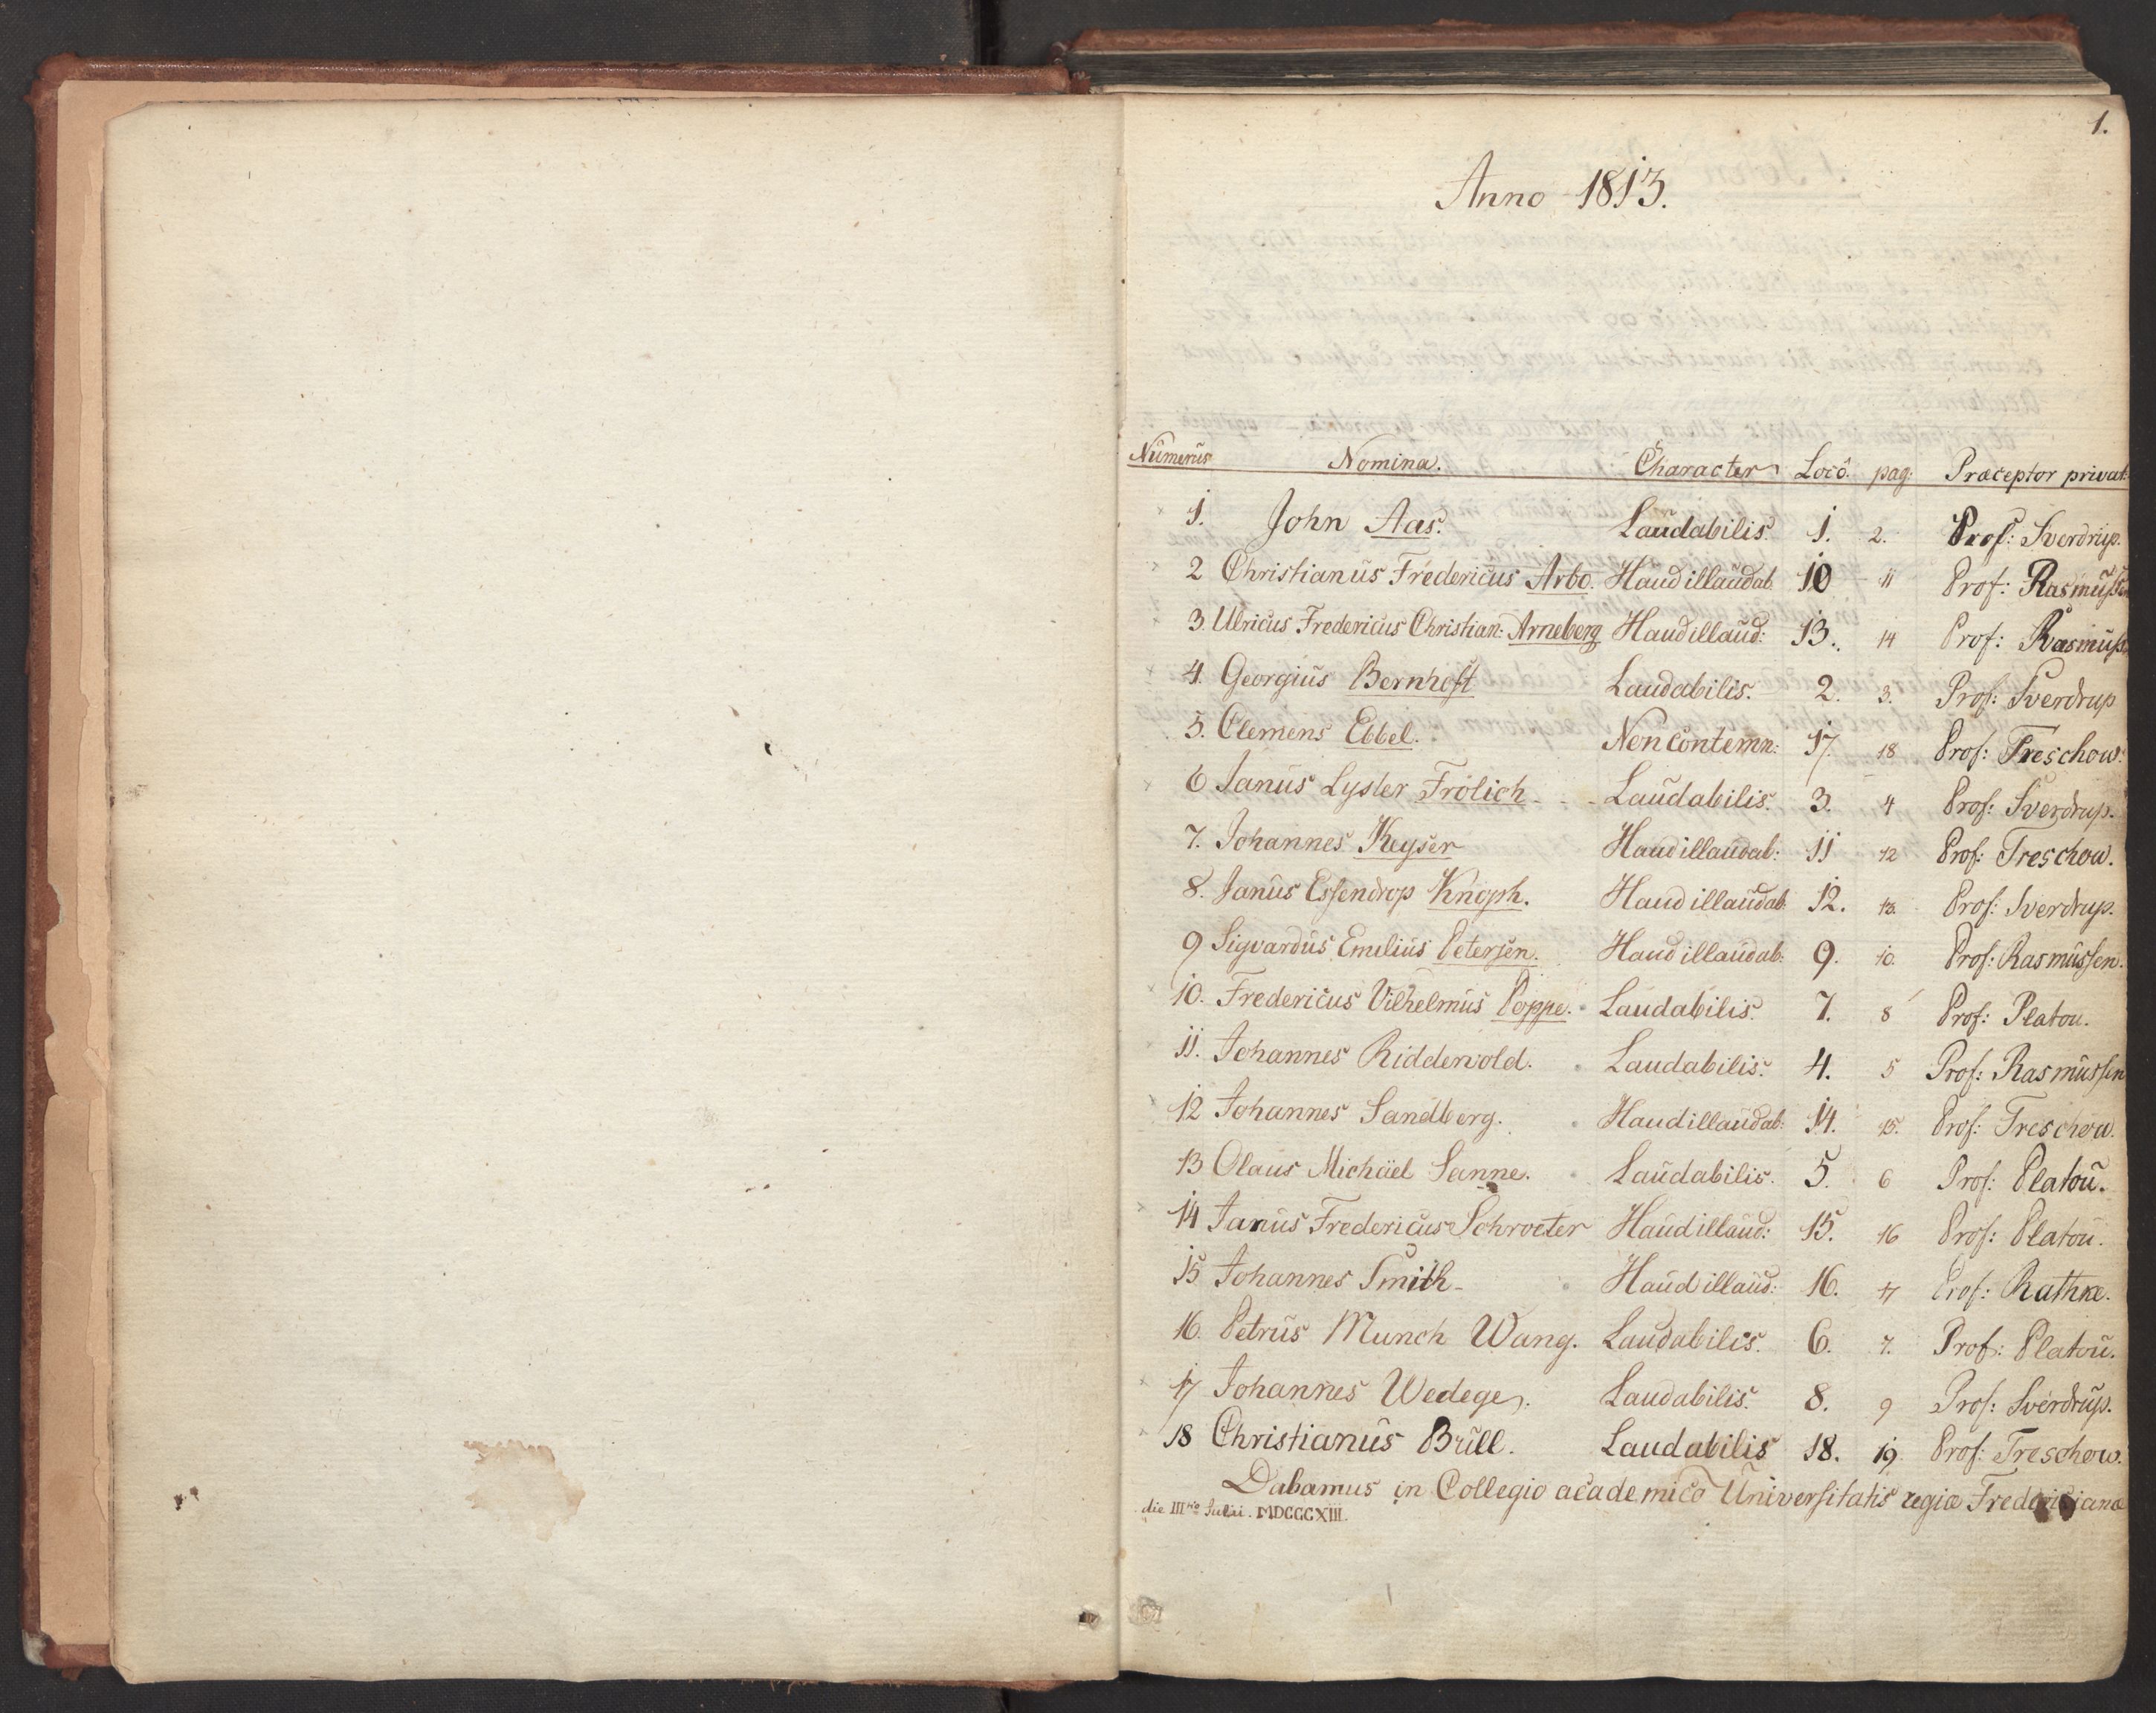 1.
Anno 1813.
Numerus Nomina. Character Loco. pag: Præceptor privat:
1. John Aas. Laudabilis. 1. 2. Prof: Sverdrup.
2 Christianus Fredericus Arbo. Haud illaudab. 10 11 Prof: Rasmussen
3. Ulricus Fredericus Christian: Arneberg Haud illaud: 13. 14 Prof: Rasmuss
4. Georgius Bernhoft Laudabilis. 2. 3. Prof: Sverdrup
5. Clemens Ebbel. Non contemn: 17. 18 Prof: Treschow.
6 Janus Lyster Frölich - - Laudabilis. 3. 4 Prof: Sverdrup.
7. Johannes Keyser Haud illaudab: 11 12 Prof: Treschow.
8. Janus Essendrop Knoph. Haud illaudab: 12. 13. Prof: Sverdrup.
9 Sigvardus Emilius Petersen. Haud illaudab: 9. 10. Prof: Rasmussen.
10. Fredericus Vilhelmus Poppe. Laudabilis. 7. 8 Prof: Platou.
11. Johannes Riddervold. Laudabilis. 4. 5 Prof: Rasmussen
12 Johannes Sandberg. Haud illaudab: 14. 15. Prof: Treschow.
13 Olaus Michäel Sanne. Laudabilis. 5. 6 Prof: Platou.
14 Janus Fredericus Schroeter Haud illaud: 15. 16 Prof: Platou.
15 Johannes Smith - Haud illaud: 16. 17 Prof: Rathke.
16. Petrus Munch Wang. Laudabilis. 6. 7. Prof: Platou.
17 Johannes Wedege. Laudabilis. 8. 9 Prof: Sverdrup.
18 Christianus Brull. Laudabilis 18. 19. Prof: Treschow.
Dabamus in Collegio academico Universitatis regiæ Fredericianæ
die III tio Julii. MDCCCXIII.